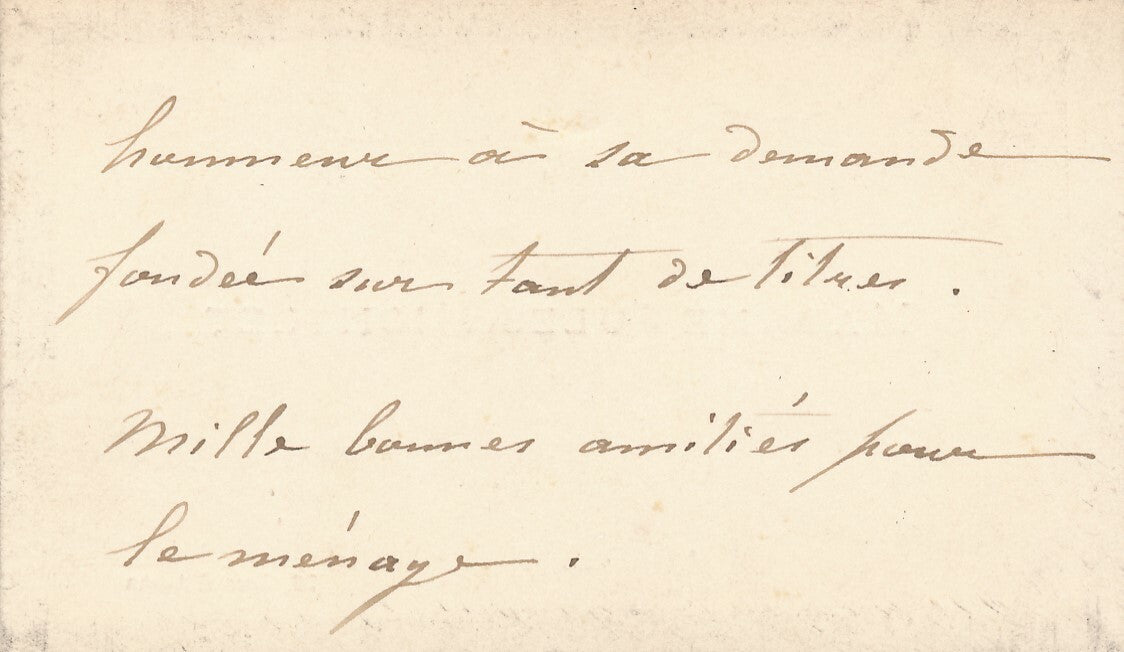 honneur à sa demande
fondée sur tant de titres.
Mille bonnes amitiés pour
le ménage.